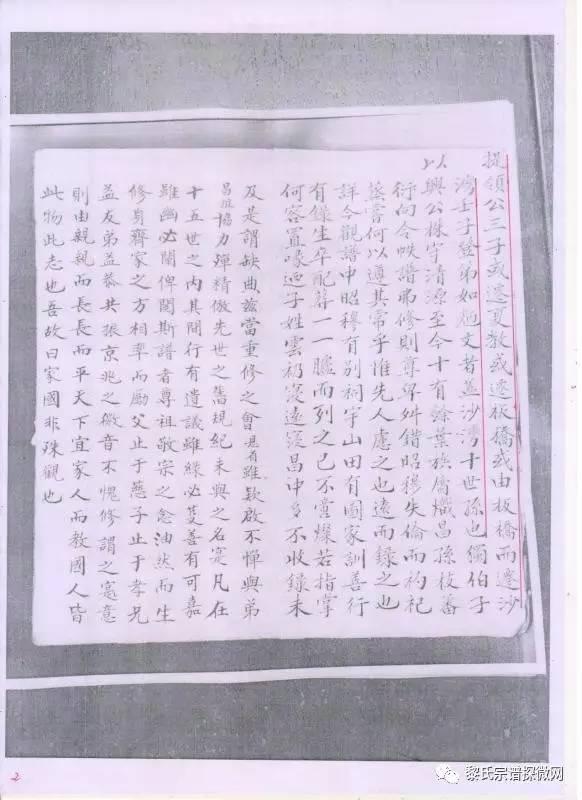 提領公三子或遷夏教或遷板橋或由板橋而遷沙
灣壬子登弟如炮文者盖沙灣十世孫也獨伯子
以
興公株守清源至今十有餘葉族属熾昌孫枝蕃
衍向令帙譜弗修則尊卑舛錯昭穆失倫而礿祀
蒸嘗何以遵其常乎惟先人慮之也遠而録之也
詳今觀譜中昭穆有别祠宇山田有圖家訓善行
有錄生卒配葬一一臚而列之已不啻燦若指掌
何容置喙乎子姓雲礽寖遠寖昌中多不收録未
及是謂缺典兹當重修之會是有雖欵啟不憚與弟
昌祚協力殫精倣先世之舊規紀未與之名寔凡在
十五世之内其間行有遺議雖緣必隻善有可嘉
雖幽必闡俾閱斯譜者尊祖敬宗之念油然而生
修身齊家之方相率而勵父止于慈子止于孝兄
益友弟益恭共振京兆之徽音不愧修譜之寔意
則由親親而長長而平天下宜家人而教國人皆
此物此志也吾故曰家國非殊觀也
2
黎氏宗谱探微网